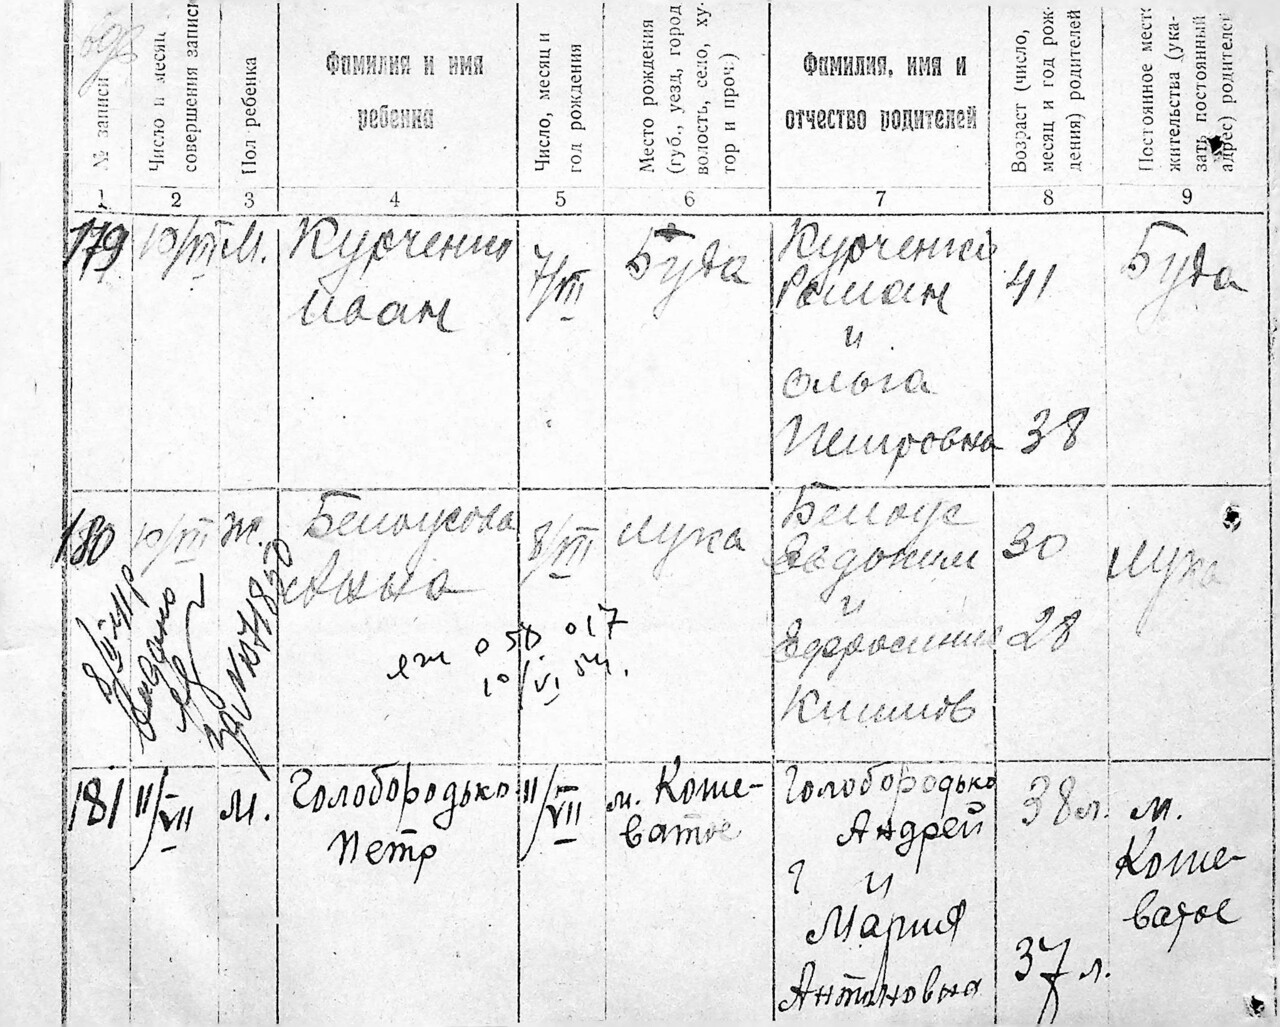 № записи
Число и месяц
совершения записи
Пол ребенка
Фамилия и имя
ребенка
Число, месяц и
год рождения
Место рождения
(губ., уезд, город
волость, село, ху-
тор и проч.)
Фамилия, имя и
отчество родителей
Возраст (число,
месяц и год рож-
дения) родителей
Постоянное место
жительства (ука-
зать постоянный
адрес) родителей
1 2 3 4 5 6 7 8 9
179 10/VII М. Курченко 7/VII Буда Курченко 41 Буда
Иван Роман
и
Ольга
Петровна 38
180 10/VII Ж. Белоусова 8/VII Лука Белоус 30 Лука
Анна Евдоким
и
Ефросиния 28
Климов
выдано
за № 1071850
050.017
10/VI 54.
181 11/VII М. Голобородько 11/VII м. Коше- Голобородько 38 л. м.
Петр ватое Андрей Коше-
и ватое
Мария
Антоновна 37 л.